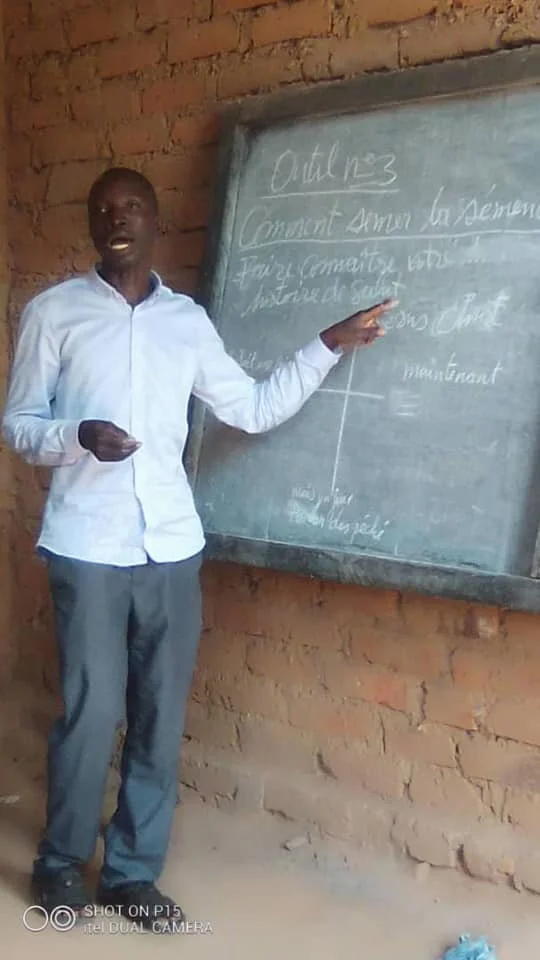 Outil n°3
Comment semer la semen
Faire connaître votre
histoire de Salut
esus Christ
maintenant
mais un jour
des péché
SHOT ON P15
itel DUAL CAMERA